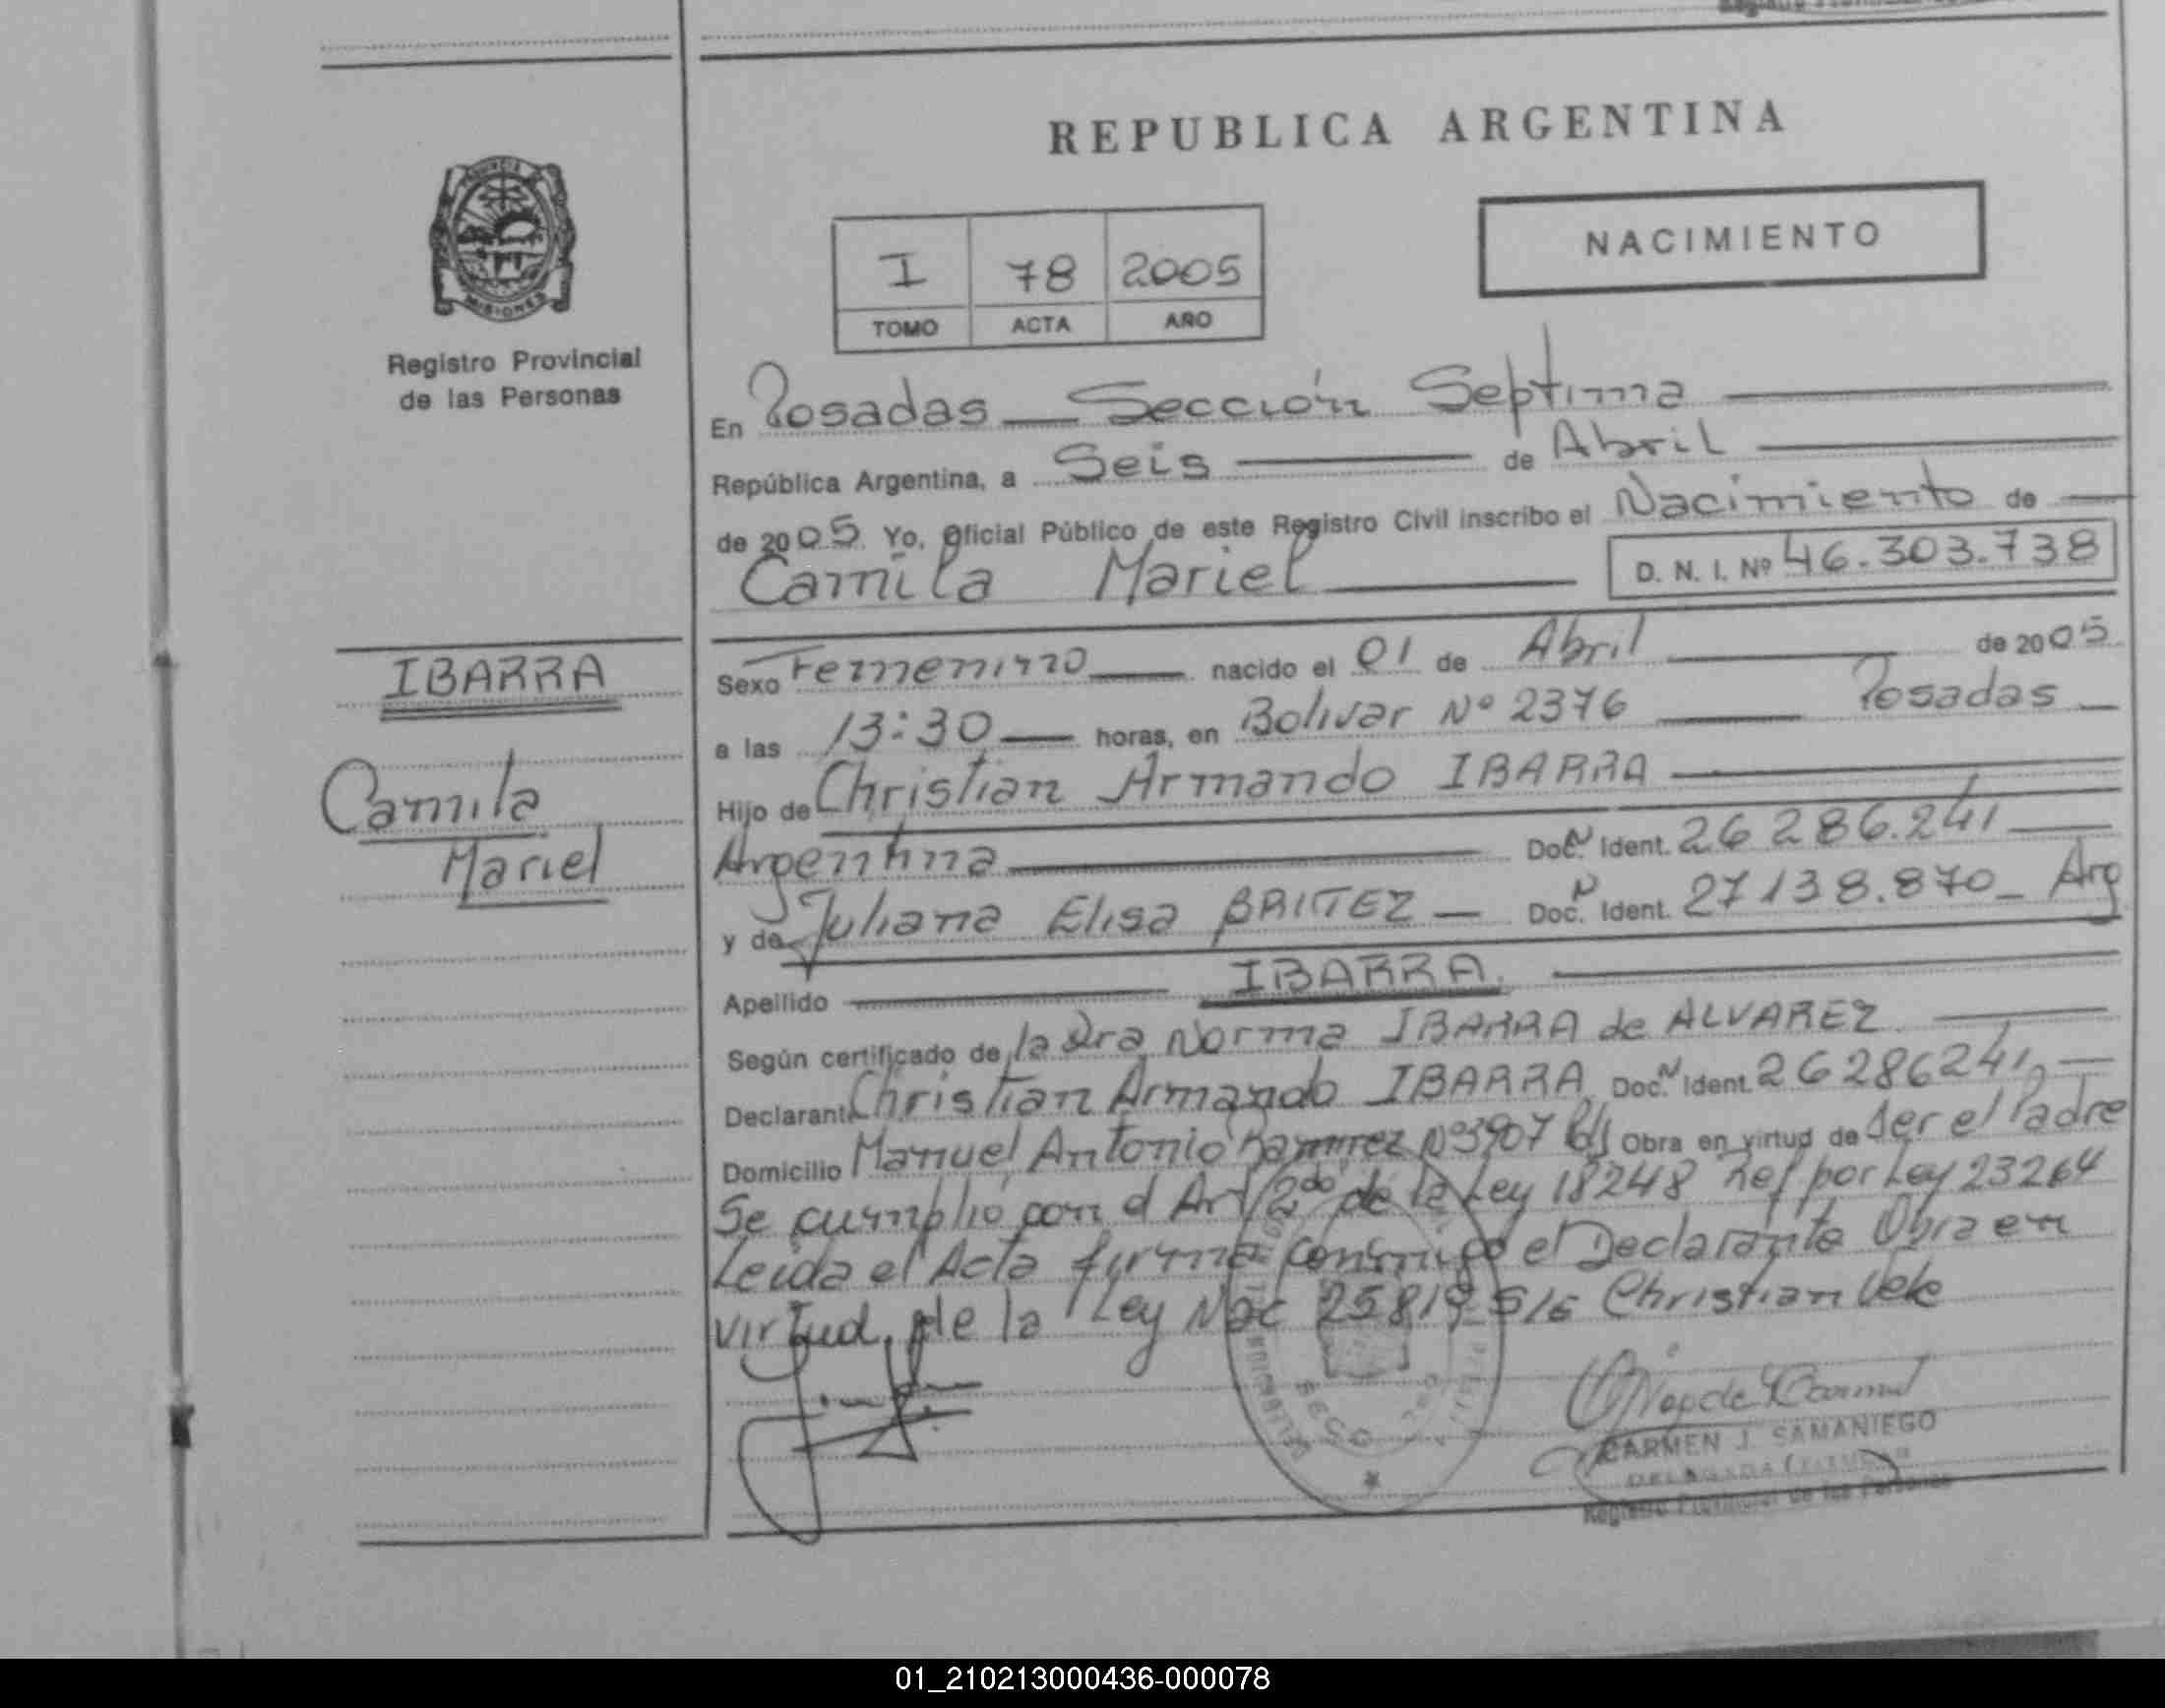 REPUBLICA ARGENTINA
MISIONES
Registro Provincial
de las Personas
I 78 2005
TOMO ACTA AÑO
NACIMIENTO
En Posadas — Sección Septima
República Argentina, a Seis de Abril
de 2005 Yo, Oficial Público de este Registro Civil inscribo el Nacimiento de
Camila Mariel
D. N. I. Nº 46.303.738
IBARRA
Camila
Mariel
Sexo Femenino nacido el 01 de Abril de 2005
a las 13:30 horas, en Bolivar Nº 2376 Posadas
Hijo de Christian Armando IBARRA
Argentina Doc. Ident. 26 286.241
y de Juliana Elisa BRITEZ — Doc. Ident. 27138.870 – Arg
Apellido IBARRA.
Según certificado de la Dra Norma IBARRA de ALVAREZ
Declarante Christian Armando IBARRA Doc. Ident. 26286241
Domicilio Manuel Antonio Ramirez Nº 3907 Pds Obra en virtud de ser el Padre
Se cumplió con el Art 2do de la Ley 18248 Ref por Ley 23264
Leida el Acta firma conmigo el Declarante Obra en
virtud de la Ley Nac 25819 S/E Christian Vale
CARMEN J. SAMANIEGO
Registro Provincial de las Personas
01_210213000436-000078